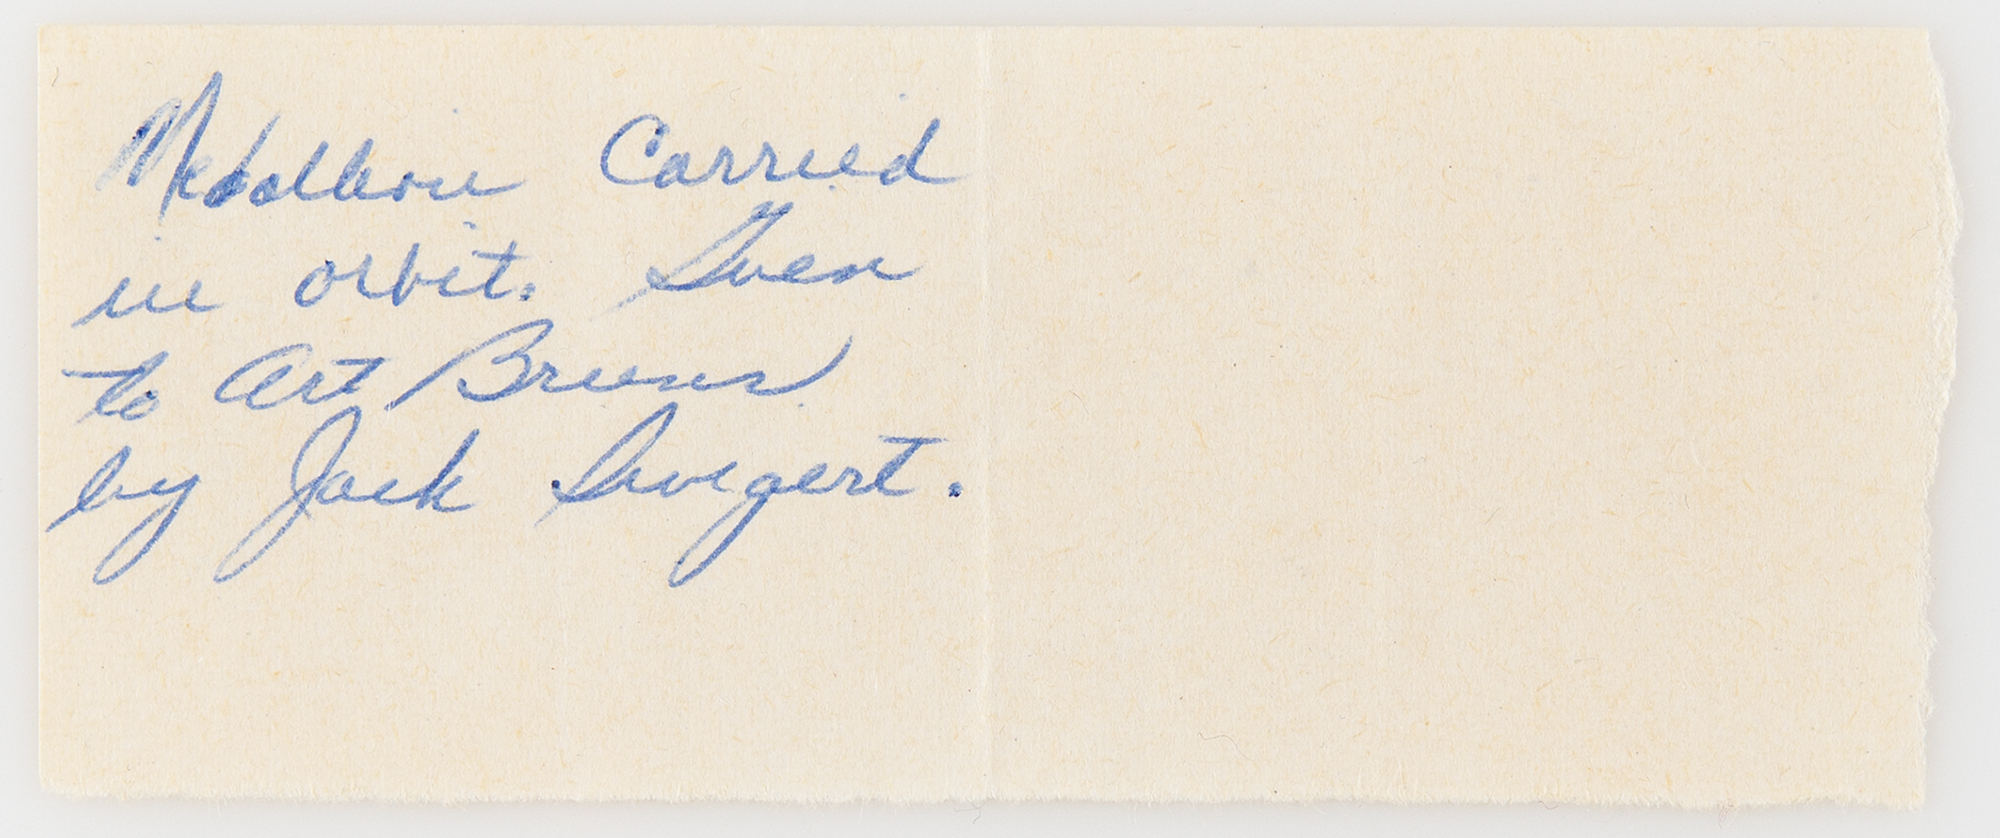 Medallion Carried
in orbit. Given
to Art Bruns
by Jack Swigert.